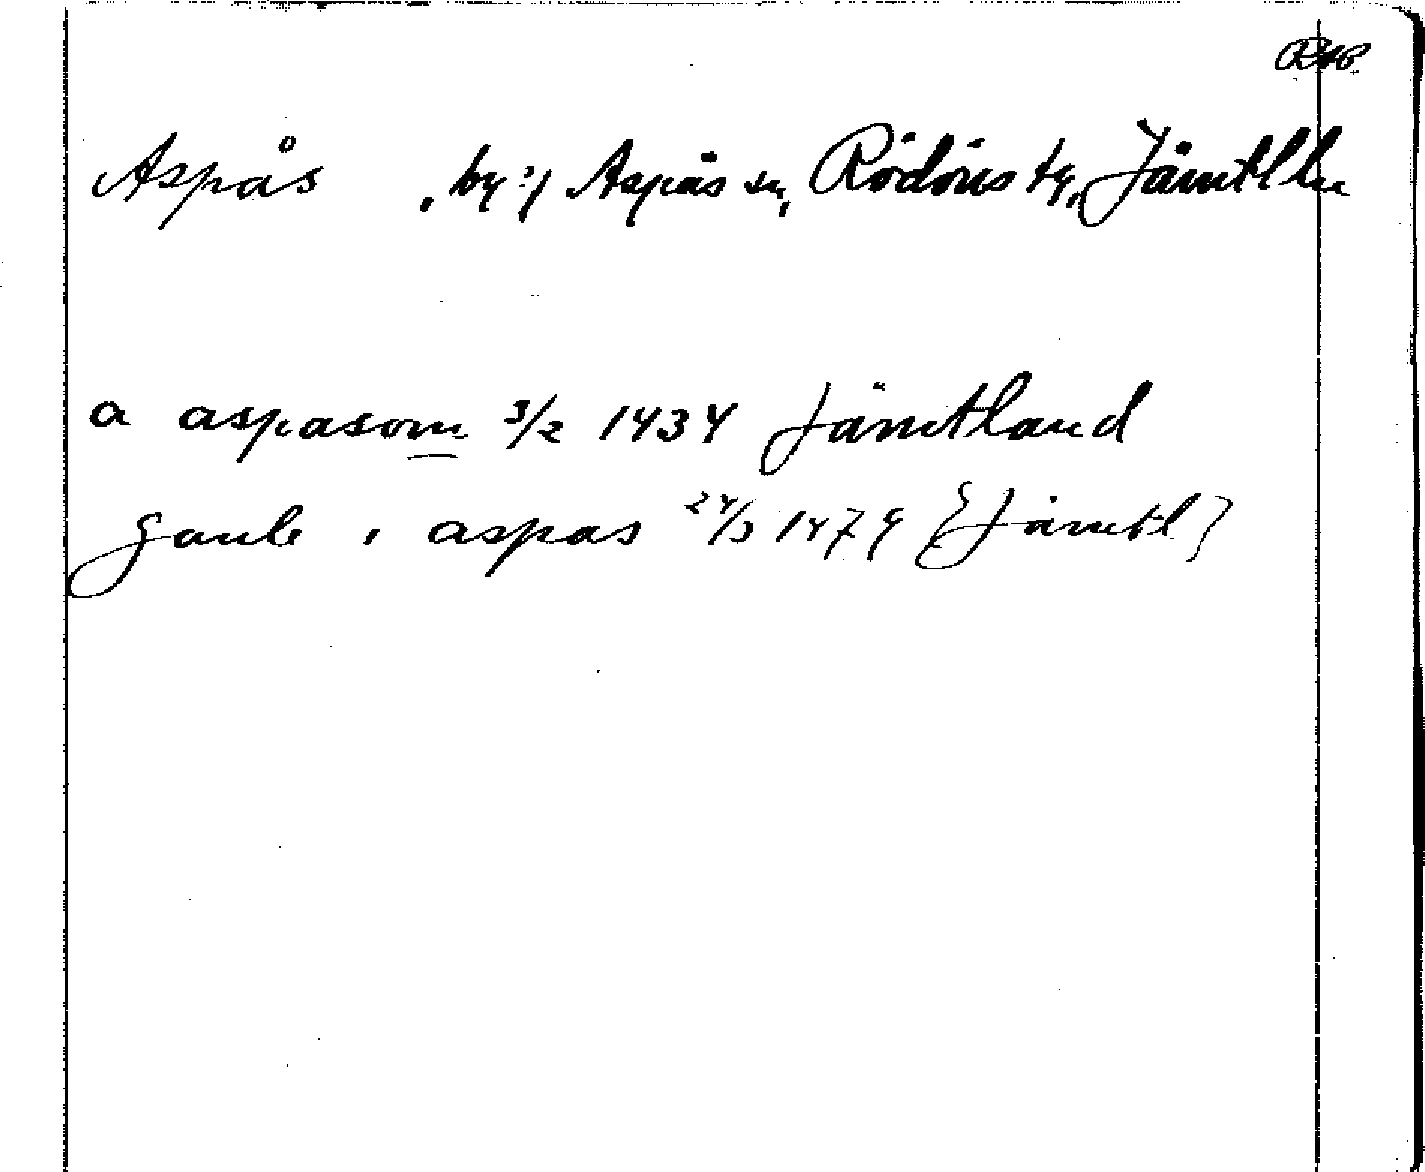 Aspås , by i Aspås sn, Rödöns tg, Jämtl ln
a aspasom 3/2 1434 Jämtland
i aspas 24/3 1479 {Jämtl}